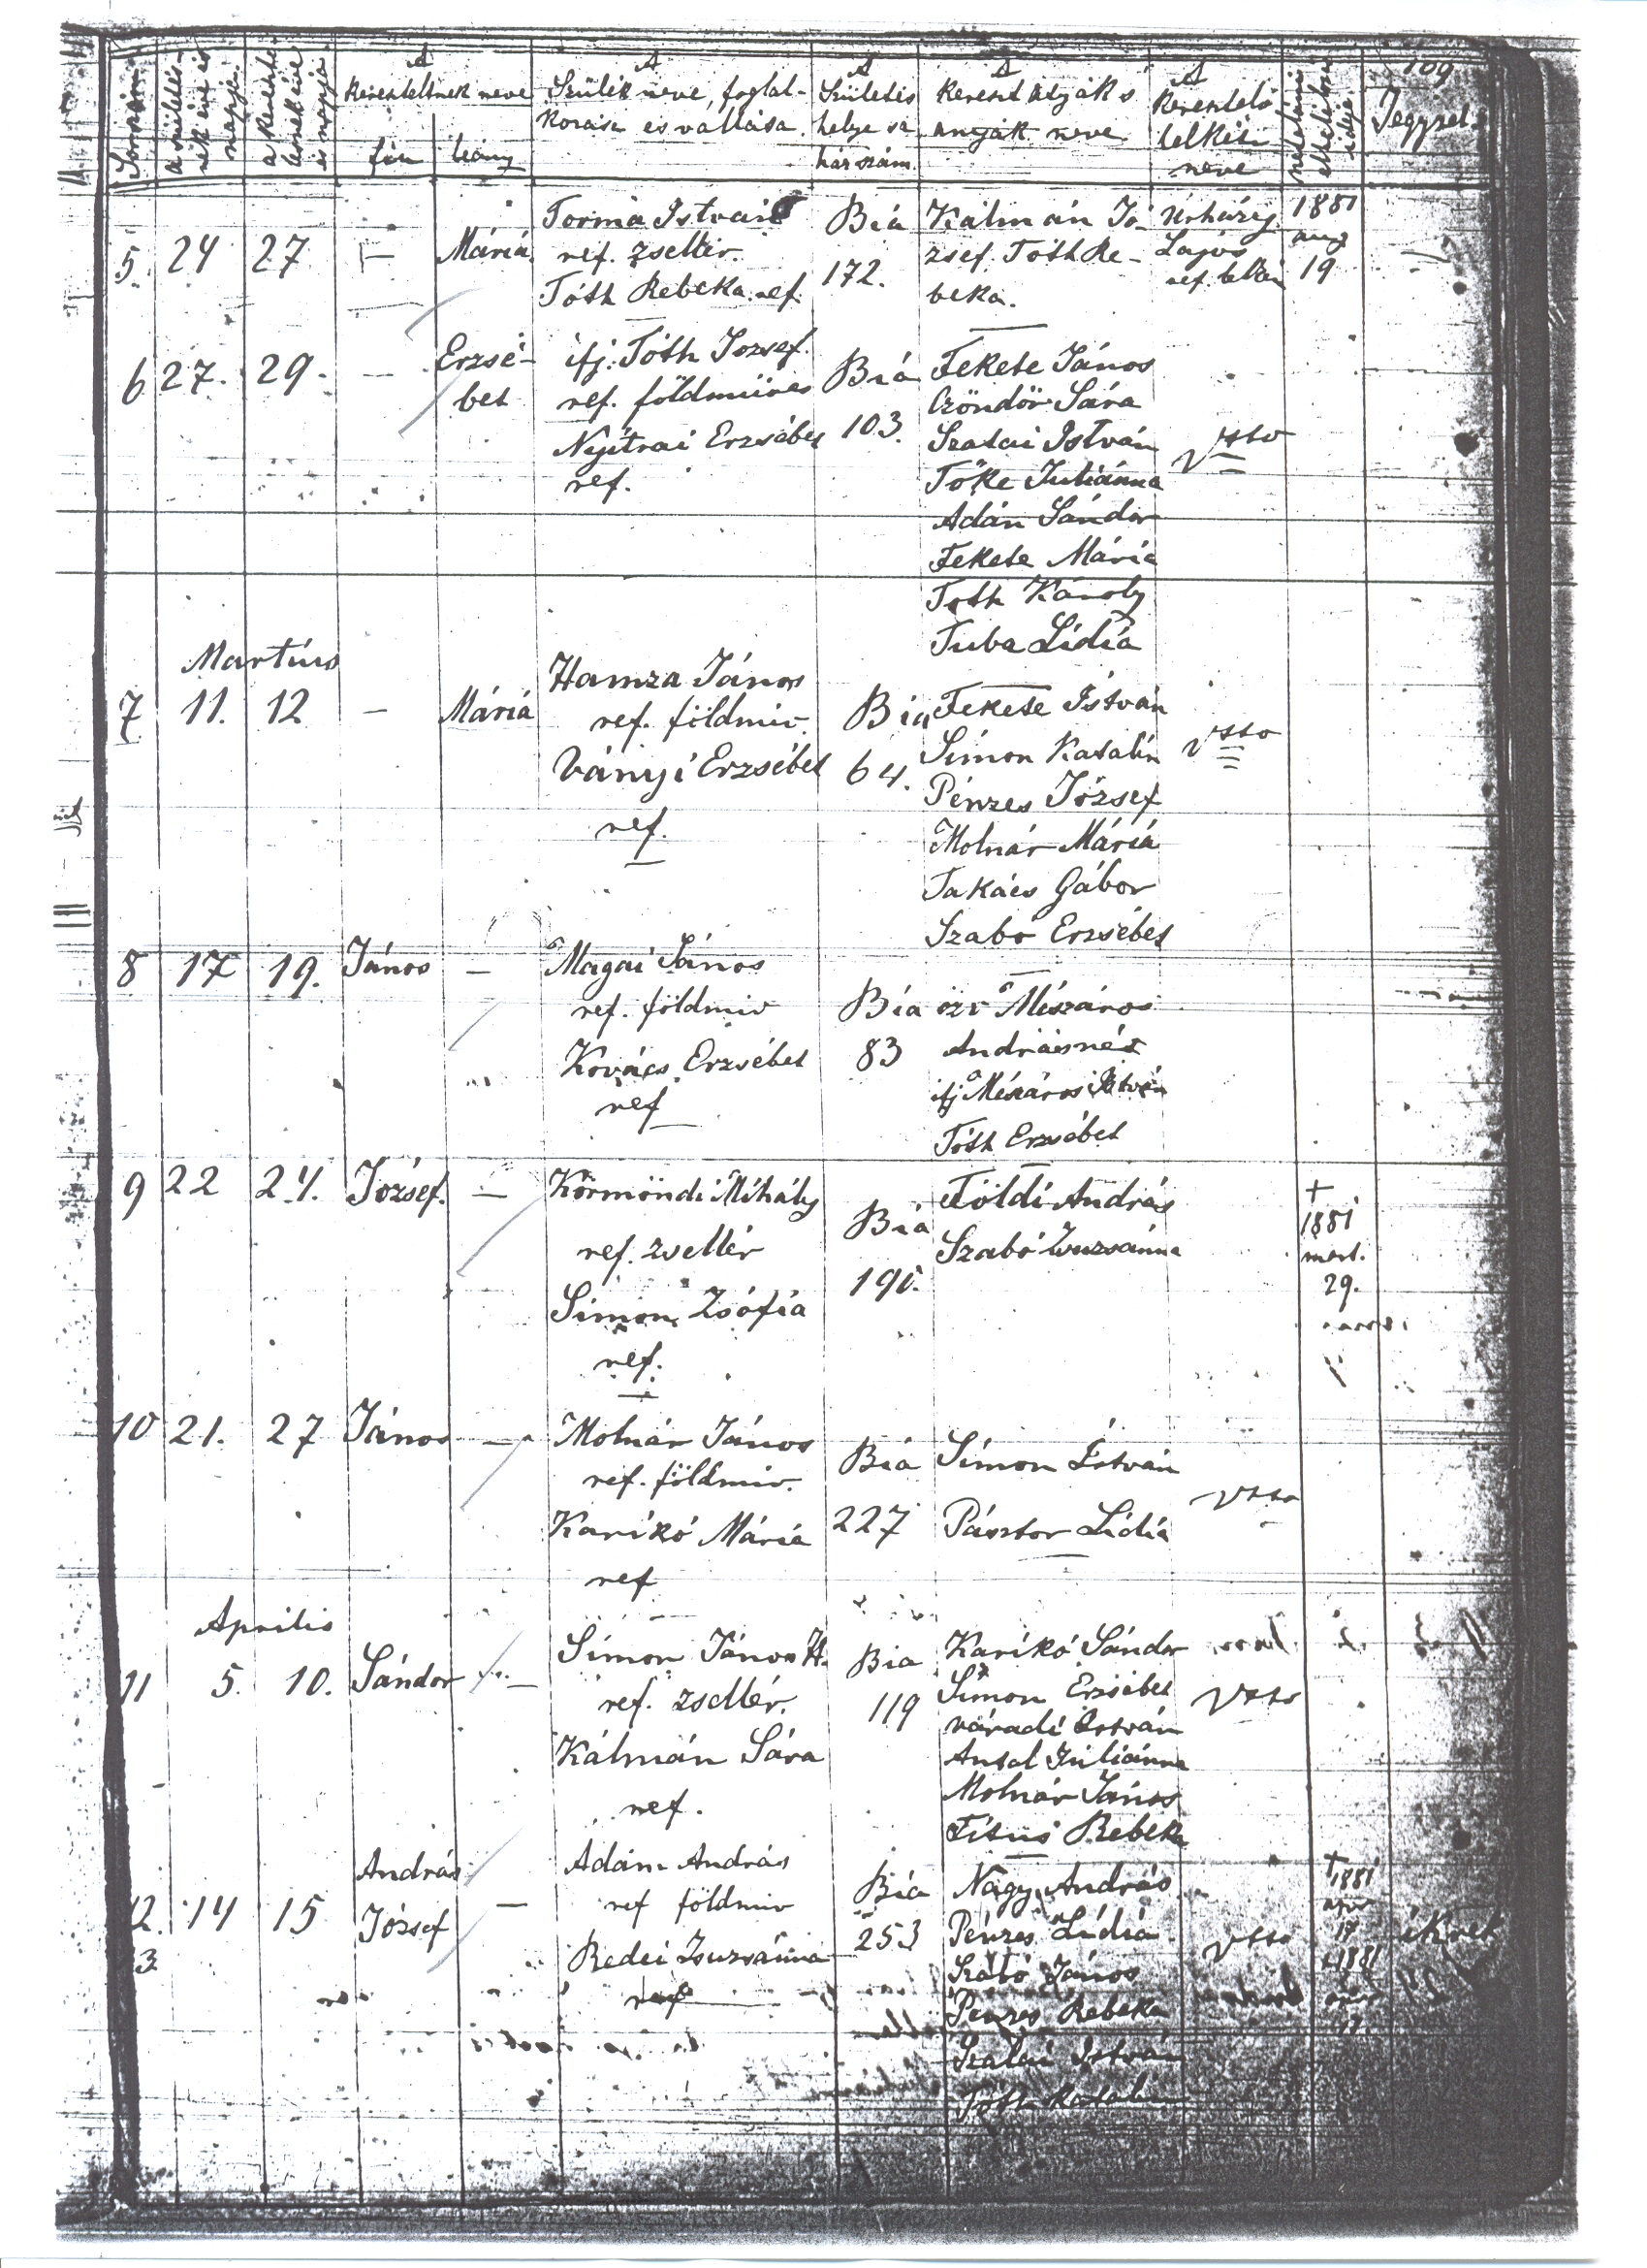 109
Sorszám
A születés-
nek éve és
napja
a keresztelésnek éve
és napja
A
kereszteltnek neve
fiu leány
A
Szülék neve, foglal-
kozása és vallása.
A
Születés
helye sa
házszám
A
kereszt atyák s
anyák neve
A
keresztelő
lelkész
neve
ideje
Jegyzet
5. 24 27 — Mária
Torma István
ref. zsellér.
Tóth Rebeka ref.
Bia
172.
Kálmán Jó-
zsef. Tóth Re-
beka.
Lajos
ref. lelkész
1881
aug
19
6 27. 29. — Erzsé-
bet
ifj. Tóth József.
ref. földmüves
Nyitrai Erzsébet
ref.
Bia
103.
Fekete János
Czöndör Sára
Szalai István
Tőke Juliánna
Adán Sándor
Fekete Mária
Tóth Károly
Tuba Lídia
Martius
7 11. 12 — Mária
Hamza János
ref. földmiv.
Ványi Erzsébet
ref.
Bia
64.
Fekete István
Símon Katalin
Pénzes József
Molnár Mária
Takács Gábor
Szabó Erzsébet
8 17 19. János —
Magai János
ref. földmiv
Kovács Erzsébet
ref
Bia
83
özv Mészáros
Andrásné
ifj Mészáros István
Tóth Erzsébet
9 22 24. József. —
Körmöndi Mihály
ref. zsellér
Simon Zsófia
ref.
Bia
Földi András
Szabó Zsuzsánna
+
1881
mart.
29.
10 21. 27 János —
Molnár János
ref. földmiv.
Karikó Mária
ref
Bia
227
Símon István
Pásztor Lídia
Aprilis
11 5. 10. Sándor —
Símon János H.
ref. zsellér.
Kálmán Sára
ref.
Bia
119
Karikó Sándor
Símon Erzsébet
Váradi István
Antal Juliánna
Molnár János
Titus Rebeka
12. 14 15 András
József —
13
Adám András
ref földmiv
Redei Zsuzsánna
ref
Bia
253
Nagy András
Pénzes Lídia
Szabó János
Pénzes Rebeka
Szalai István
Tóth Katalin
+ 1881
apr
17
+ 1881
ikrek